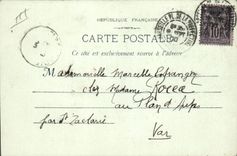 RÉPUBLIQUE FRANÇAISE
CARTE POSTALE
Ce côté est exclusivement réservé à l'adresse
Mademoiselle Marcelle
chez Madame Rocca
au Plan d'Aups
par St Zacharie
Var
10